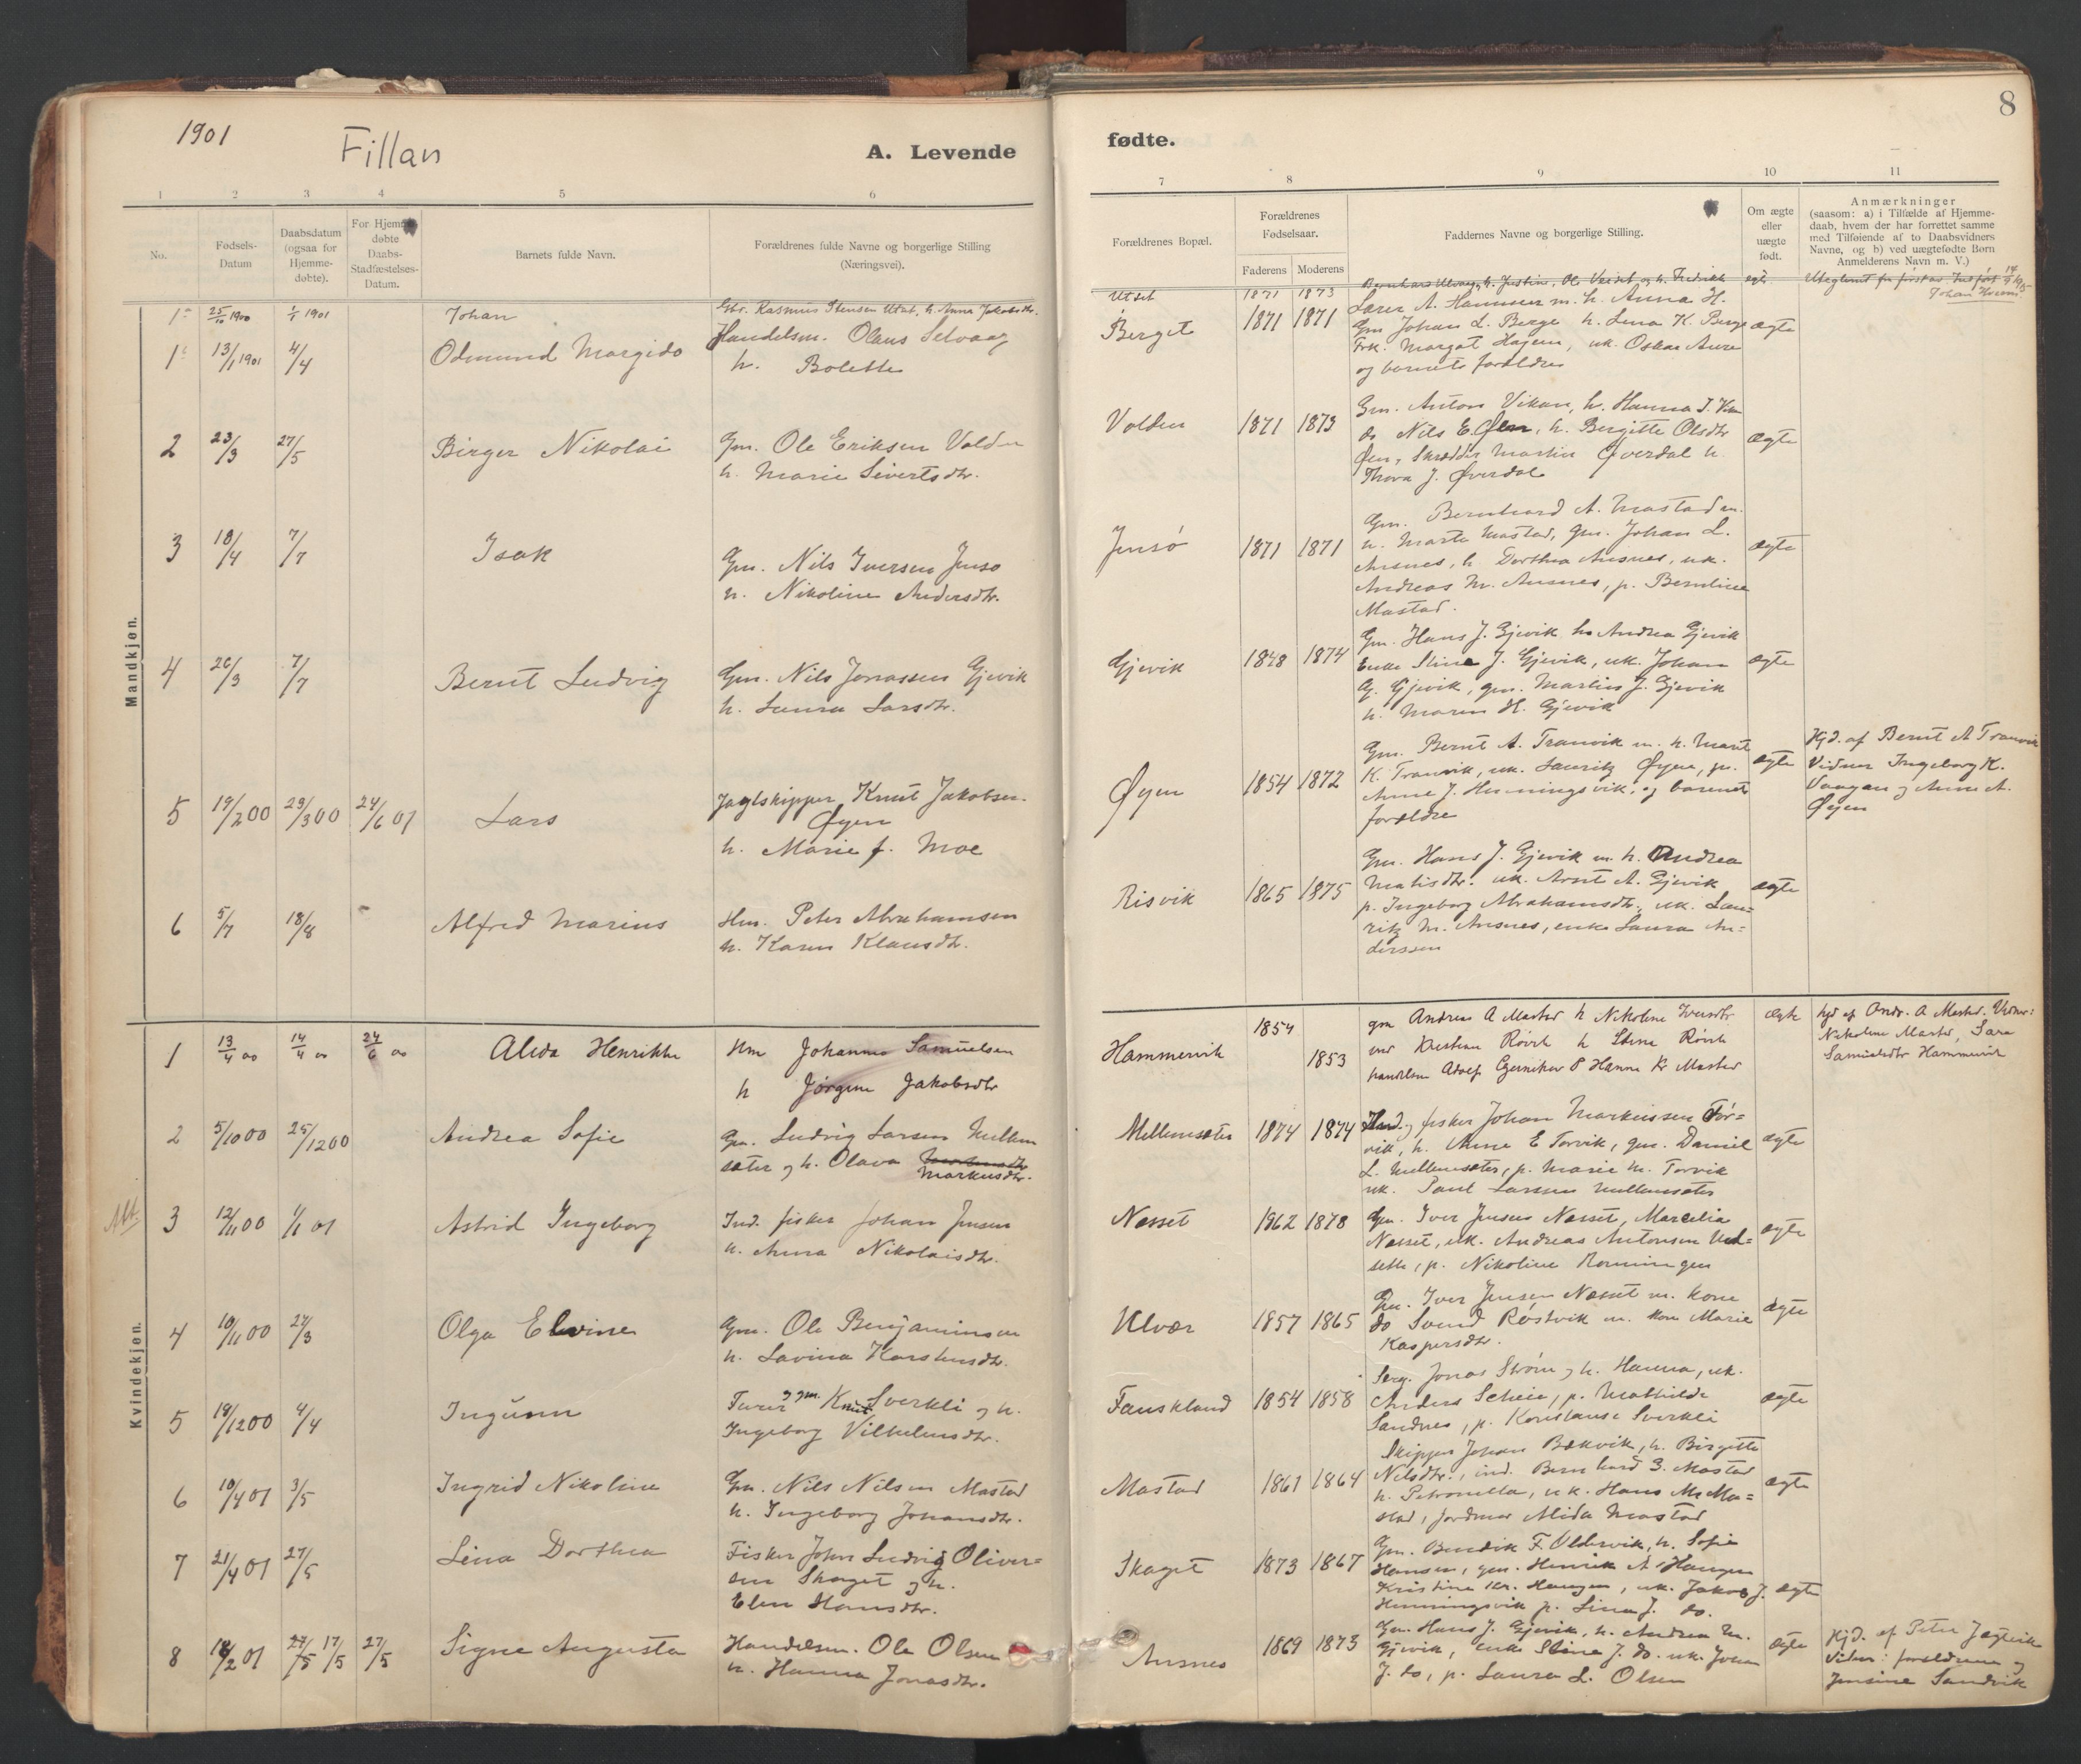 1901
Fillan
A. Levende
1 2 3 4 5 6
No.
Fødsels-
Datum
Daabsdatum
(ogsaa for
Hjemme-
døbte).
For Hjemme-
døbte
Daabs-
Stadfæstelses-
Datum.
Barnets fulde Navn.
Forældrenes fulde Navne og borgerlige Stilling
(Næringsvei).
Mandkjøn.
25/10 1900 1/1 1901 Johan Rasmus Stensen Utset, h. Anna Jakobsdtr.
13/1 1901 4/4 Odmund Margido Handelsm. Olaus Selvaag
h. Bolette
2 23/3 27/5 Birger Nikolai Gm. Ole Eriksen Volden
h. Marie Sivertsdtr.
3 10/4 7/7 Isak Gm. Nils Iversen Jensø
h. Nikoline Andersdtr.
4 26/3 7/7 Bernt Ludvig Gm. Nils Jonassen Gjevik
h. Laura Larsdtr.
5 19/2 00 23/3 00 24/6 01 Lars Jagtskipper Knut Jakobsen
Øyen
h. Marie J. Moe
6 5/7 18/8 Alfred Marius Hm. Peter Abrahamsen
h. Karen Klausdtr.
Kvindekjøn.
1 13/4 00 14/4 00 24/6 00 Alida Henrikke Hm Johannes Samuelsen
h Jørgine Jakobsdtr
2 5/10 00 25/12 00 Andrea Sofie Gm. Ludvig Larsen Mellem
sæter og h. Olava
Markusdtr.
Att. 3 12/11 00 1/1 01 Astrid Ingeborg Ind. fisker Johan Jensen
h. Anna Nikolaisdtr.
4 10/11 00 24/3 Olga Elvine Gm. Ole Benjaminsen
h. Lavina Karstensdtr.
5 18/12 00 4/4 Ingunn og gm. Knut Sverkli og h.
Ingeborg Vilhelmsdtr.
6 10/4 01 3/5 Ingrid Nikoline Gm. Nils Nilsen Mastad
h. Ingeborg Johansdtr.
7 21/4 01 27/5 Lina Dorthea Fisker John Ludvig Oliver=
sen Skaget og h.
Elen Hansdtr.
8 2 01 27/5 17/5 27/5 Signe Augusta Handelsm. Ole Olsen
h. Hanna Jonasdtr.
8
fødte.
7 8 9 10 11
Forældrenes Bopæl.
Forældrenes
Fødselsaar.
Faderens Moderens
Faddernes Navne og borgerlige Stilling.
Om ægte
eller
uægte
født.
Anmærkninger
(saasom: a) i Tilfælde af Hjemme-
daab, hvem der har forrettet samme
med Tilføiende af to Daabsvidners
Navne, og b) ved uægtefødte Børn
Anmelderens Navn m. V.)
Utset 1871 1873 h. Justine, Ole Utset og h. Fredrikke ægte
Berget 1871 1871 Lærer A. Hammer m. h. Anna H.
Gm Johan L. Berge h. Lina K. Berge ægte
Frk. Margot Hagen, uk. Oskar Aure
og barnets forældre
Volden 1871 1873 Gm. Anton Vikan, h. Hanna J. Vikan
do Nils E. Øien, h. Bergitte Olsdtr ægte
Øien, Skrædder Martin Øverdal h.
Thora J. Øverdal
Jensø 1871 1871 Gm. Bernhard A. Mastad m.
h. Marta Mastad, gm. Johan L. ægte
Ansnes, h. Dorthea Ansnes, uk.
Andreas M. Ansnes, p. Berntine
Mastad.
Gjevik 1848 1874 Gm. Hans J. Gjevik h. Andrea Gjevik
Enke Stine J. Gjevik, uk. Johan ægte
G. Gjevik, gm. Martin J. Gjevik
h. Maren H. Gjevik
Øyen 1854 1872 Gm. Bernt A. Tranvik m. h. Marit
K. Tranvik, uk. Lauritz Øyen, p. ægte
Anne J. Henningsvik, og barnets
forældre
Hjd. af Bernt A Tranvik
Vidner Ingeborg K.
Vaagan og Anne A.
Øyen
Risvik 1865 1875 Gm. Hans J. Gjevik m. h. Andrea
Matisdtr. uk. Arnt A. Gjevik ægte
p. Ingeborg Abrahamsdtr., uk. Lau=
ritz M. Ansnes, enke Laura An=
derssen
Hammervik 1854 1853 gm Andreas A Mastad h Nikoline Iversdtr ægte
ind Kristian Røvik h Stine Røvik
handelsm Adolf P Hanna Kr Mastad
hjd af Andr. A Mastad. Vidner:
Nikoline Mastad, Sara
Samuelsdtr Hammervik
Mellemsæter 1874 1874 Ind. og fisker Johan Markussen Tor=
vik, h. Anne E Torvik, gm. Daniel ægte
L. Mellemsæter, p. Marie M. Torvik
uk. Paul Larsen Mellemsæter
Nesset 1962 1878 Gm. Iver Jensen Nesset, Marcelia
Nesset, uk. Andreas Antonsen Ud= ægte
sette, p. Nikoline Ronningen
Ulvær 1857 1865 Gm. Iver Jensen Nesset m. kone ægte
do Svend Røstvik m. kone Marie
Kaspersdtr.
Fauskland 1854 1858 Serg. Jonas Strøm og h. Hanna, uk.
Anders Scheie, p. Mathilde ægte
Sandnes, p. Konstanse Sverkli
Mastad 1861 1864 Skipper Johan Bekvik, h. Birgitte
Nilsdtr., ind. Bernhard S. Mastad ægte
h. Petronella, uk. Hans M. Ma=
stad, jordmor Alida Mastad
Skaget 1873 1867 Gm. Bendik F. Oldervik, h. Sofie
Hansen, gm. Henrik A. Haugen
Kristine Kr. Haugen, uk. Jakob J. ægte
Henningsvik p. Lina J. do.
Ansnes 1869 1873 Gm. Hans J. Gjevik, h. Andrea M. ægte
Gjevik, enke Stine J. do. uk. Johan
J. do, p. Laura L. Olsen
Hjd. af Peter
Vidner: forældrene og
Jensine Sandvik